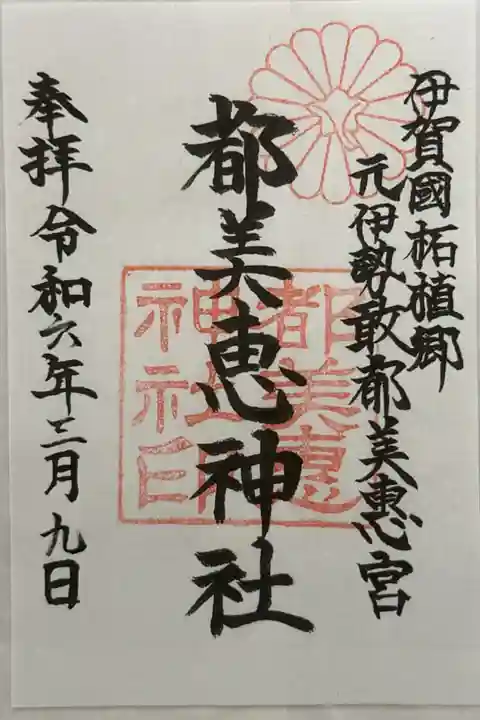 伊賀國柘植郷
元伊勢敢都美恵宮
都美恵神社
都美恵
神社印
奉拝令和六年三月九日